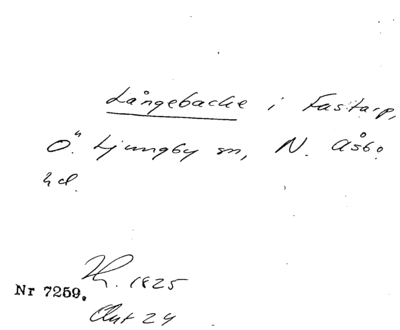 Långebacke i Fastarp,
Ö. Ljungby sn, N. Åsbo
hd.
Nr 7259.
1825
24